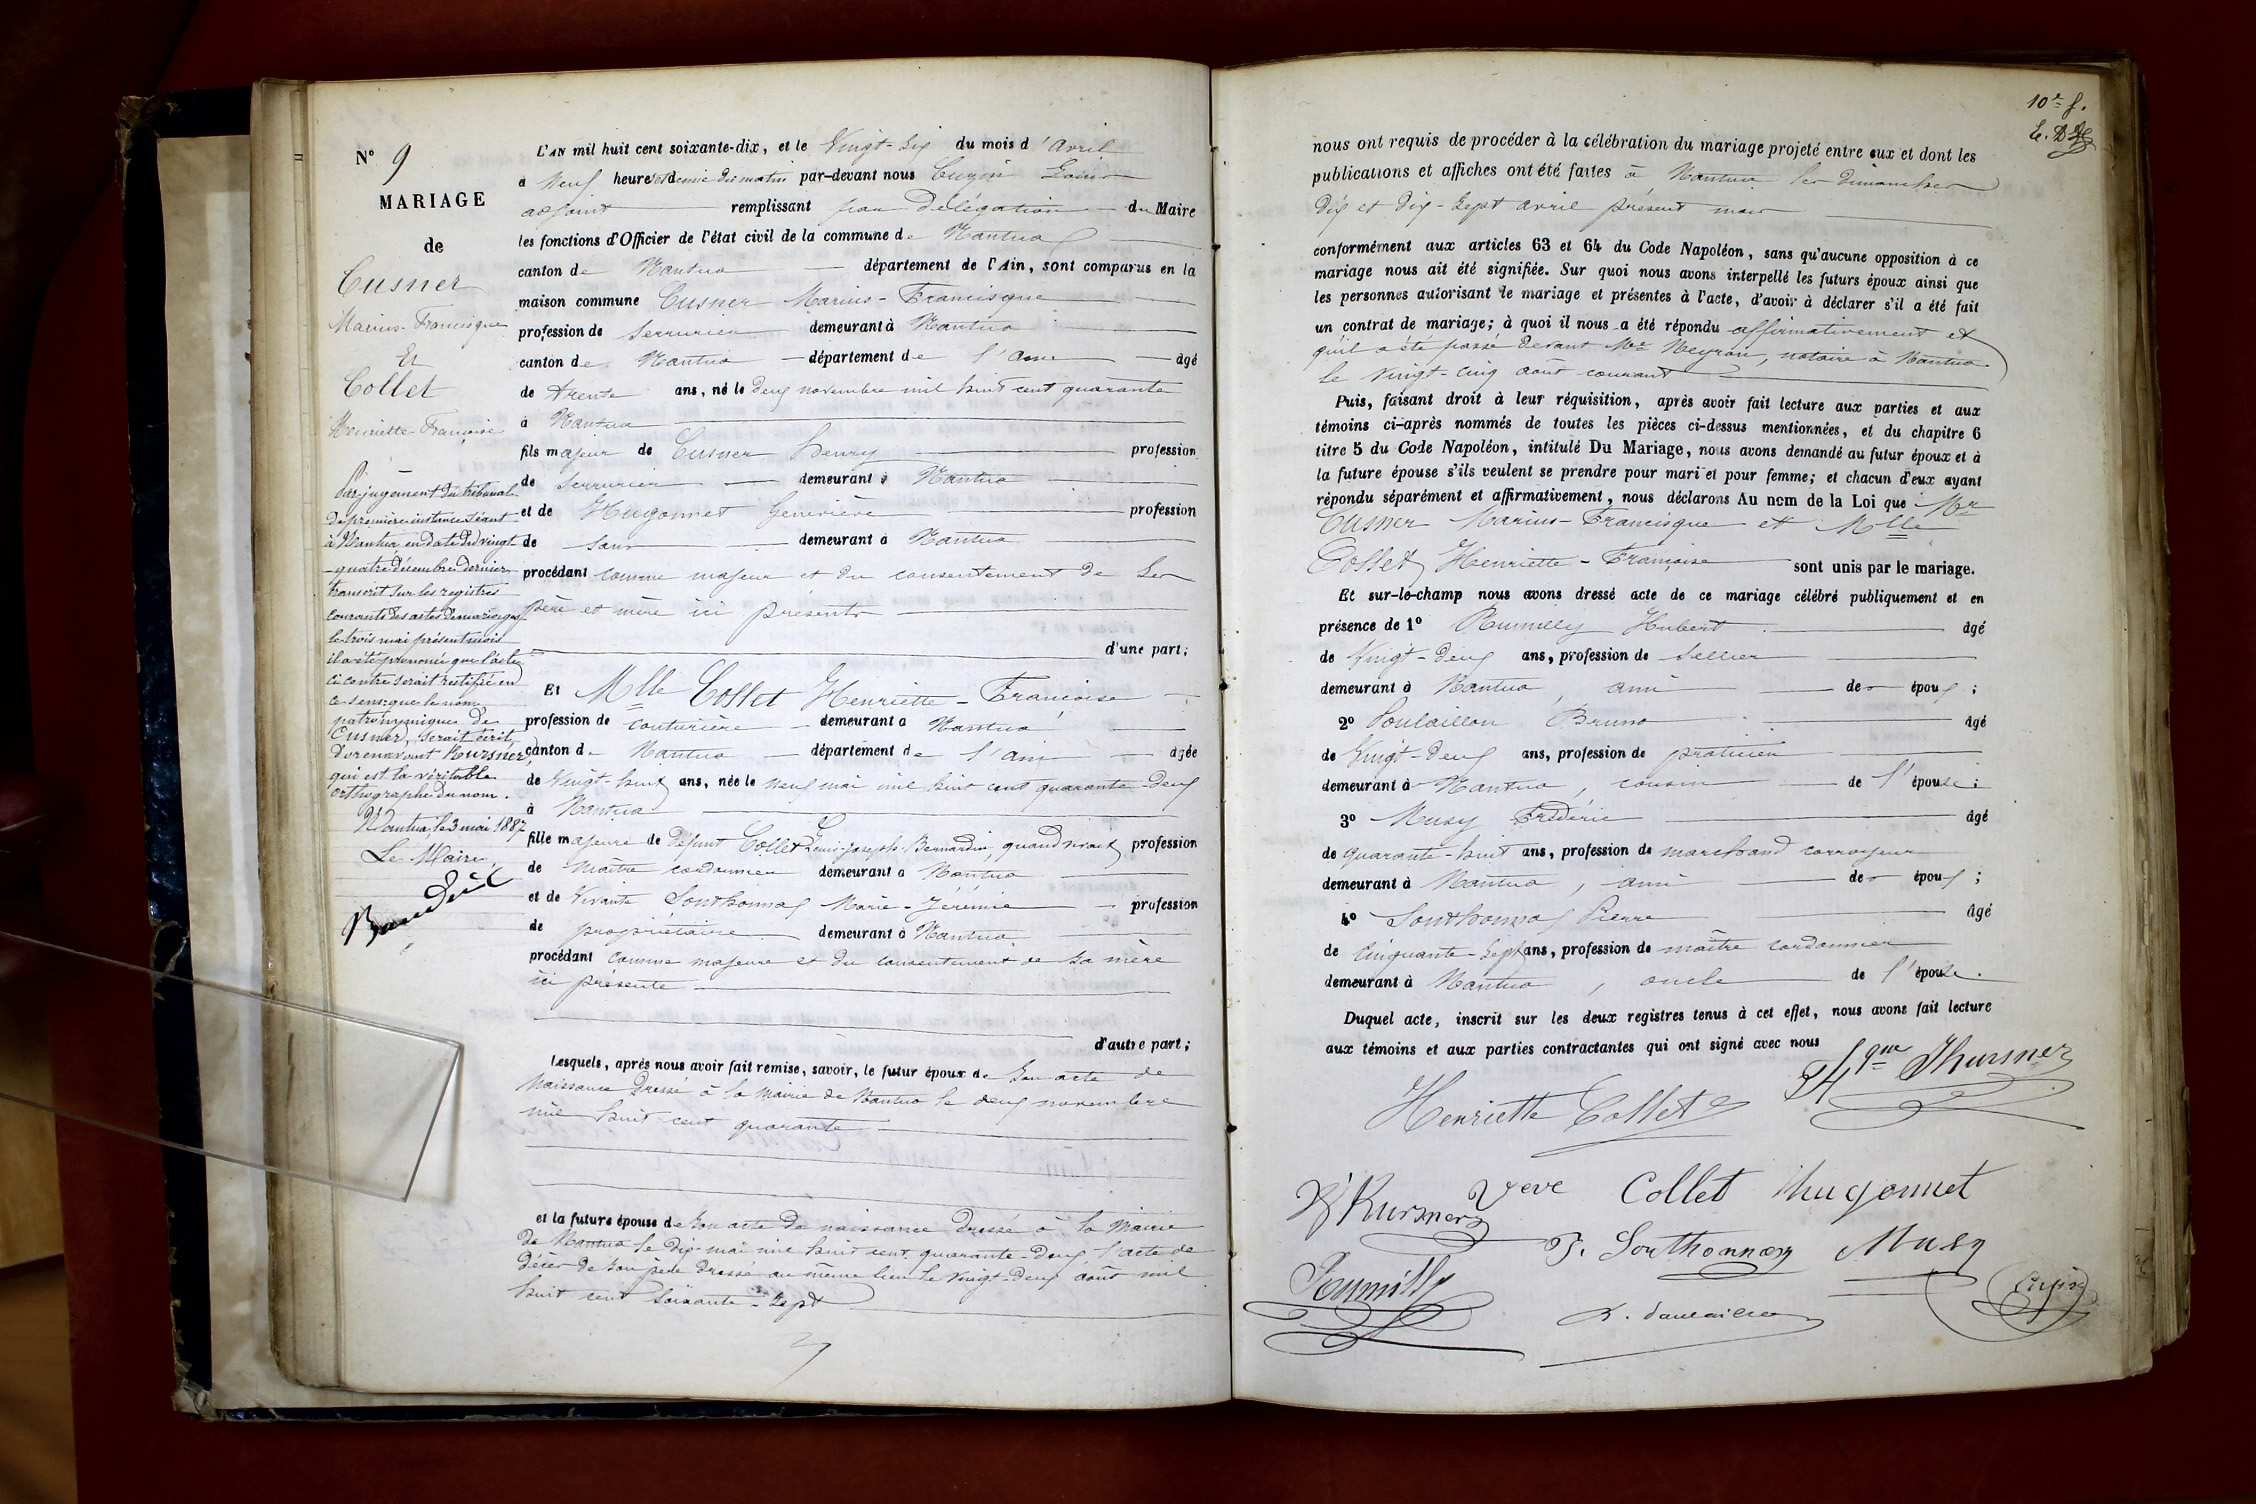 N° 9
MARIAGE
de
Cusner
Marius-Francisque
Et
Collet
Henriette-Françoise
Par jugement du tribunal
de première instance séant
à Nantua, en date du vingt
-quatre décembre dernier
transcrit sur les registres
courants des actes de mariage
le trois mai présent mois
il a été prononcé que l'acte
ci contre serait rectifié en
ce sens que le nom
patronymique de
Cusner, serait écrit
dorenavant Kursner,
qui est la véritable
orthographe du nom.
Nantua, le 3 mai 1887
Le Maire,
L'AN mil huit cent soixante-dix, et le Vingt-Six du mois d'avril
à Neuf heures et demie du matin par-devant nous Cuzin Louis
adjoint remplissant par délégation du Maire
les fonctions d'Officier de l'état civil de la commune de Nantua
canton de Nantua département de l'Ain, sont comparus en la
maison commune Cusner Marius-Francisque
profession de Serrurier demeurant à Nantua
canton de Nantua département de l'ain âgé
de trente ans, né le deux novembre mil huit cent quarante
à Nantua
fils majeur de Cusner henry profession
de Serrurier demeurant à Nantua
et de Hugonnet Geneviève profession
de sans demeurant à Nantua
procédant comme majeur et du consentement de Ses
père et mère ici présents
d'une part;
Et Mlle Collet Henriette-Françoise
profession de couturière demeurant à Nantua
canton de Nantua département de l'ain âgée
de Vingt-huit ans, née le neuf mai mil huit cent quarante-deux
à Nantua
fille majeure de défunt Collet Louis-Joseph-Bernardin, quand vivait profession
de maître cordonnier demeurant à Nantua
et de Vivante Southonnax Marie-Jérémie profession
de propriétaire demeurant à Nantua
procédant comme majeure et du consentement de Sa mère
ici présente
d'autre part;
Lesquels, après nous avoir fait remise, savoir, le futur époux de Son acte de
Naissance dressé à la Mairie de Nantua le deux novembre
mil huit cent quarante
et la future épouse de Son acte de naissance dressé à la Mairie
de Nantua le dix mai mil huit cent quarante-deux, l'acte de
décès de Son père dressé au même lieu le vingt-deux août mil
huit cent soixante-Sept
10e f.
nous ont requis de procéder à la célébration du mariage projeté entre eux et dont les
publications et affiches ont été faites à Nantua les dimanches
dix et dix-Sept avril présent mois
conformément aux articles 63 et 64 du Code Napoléon, sans qu'aucune opposition à ce
mariage nous ait été signifiée. Sur quoi nous avons interpellé les futurs époux ainsi que
les personnes autorisant le mariage et présentes à l'acte, d'avoir à déclarer s'il a été fait
un contrat de mariage; à quoi il nous a été répondu affirmativement et
qu'il a été passé devant Me Neyron, notaire à Nantua
le vingt-cinq août courant
Puis, faisant droit à leur réquisition, après avoir fait lecture aux parties et aux
témoins ci-après nommés de toutes les pièces ci-dessus mentionnées, et du chapitre 6
titre 5 du Code Napoléon, intitulé Du Mariage, nous avons demandé au futur époux et à
la future épouse s'ils veulent se prendre pour mari et pour femme; et chacun d'eux ayant
répondu séparément et affirmativement, nous déclarons Au nom de la Loi que Mr
Cusner Marius-Francisque et Mlle
Collet Henriette-Françoise sont unis par le mariage.
Et sur-le-champ nous avons dressé acte de ce mariage célébré publiquement et en
présence de 1° Rumilly Hubert âgé
de Vingt-deux ans, profession de Sellier
demeurant à Nantua, ami de époux;
2° Poulaillon Bruno âgé
de Vingt-deux ans, profession de praticien
demeurant à Nantua, cousin de l'épouse;
3° Musy Frédéric âgé
de quarante-huit ans, profession de marchand corroyeur
demeurant à Nantua, ami de époux;
4° Southonnax Pierre âgé
de Cinquante-Sept ans, profession de maître cordonnier
demeurant à Nantua, oncle de l'épouse.
Duquel acte, inscrit sur les deux registres tenus à cet effet, nous avons fait lecture
aux témoins et aux parties contractantes qui ont signé avec nous
Henriette Collet
Kursner Veve Collet hugonnet
P. Southonnax Musy
Rumilly Cuzin